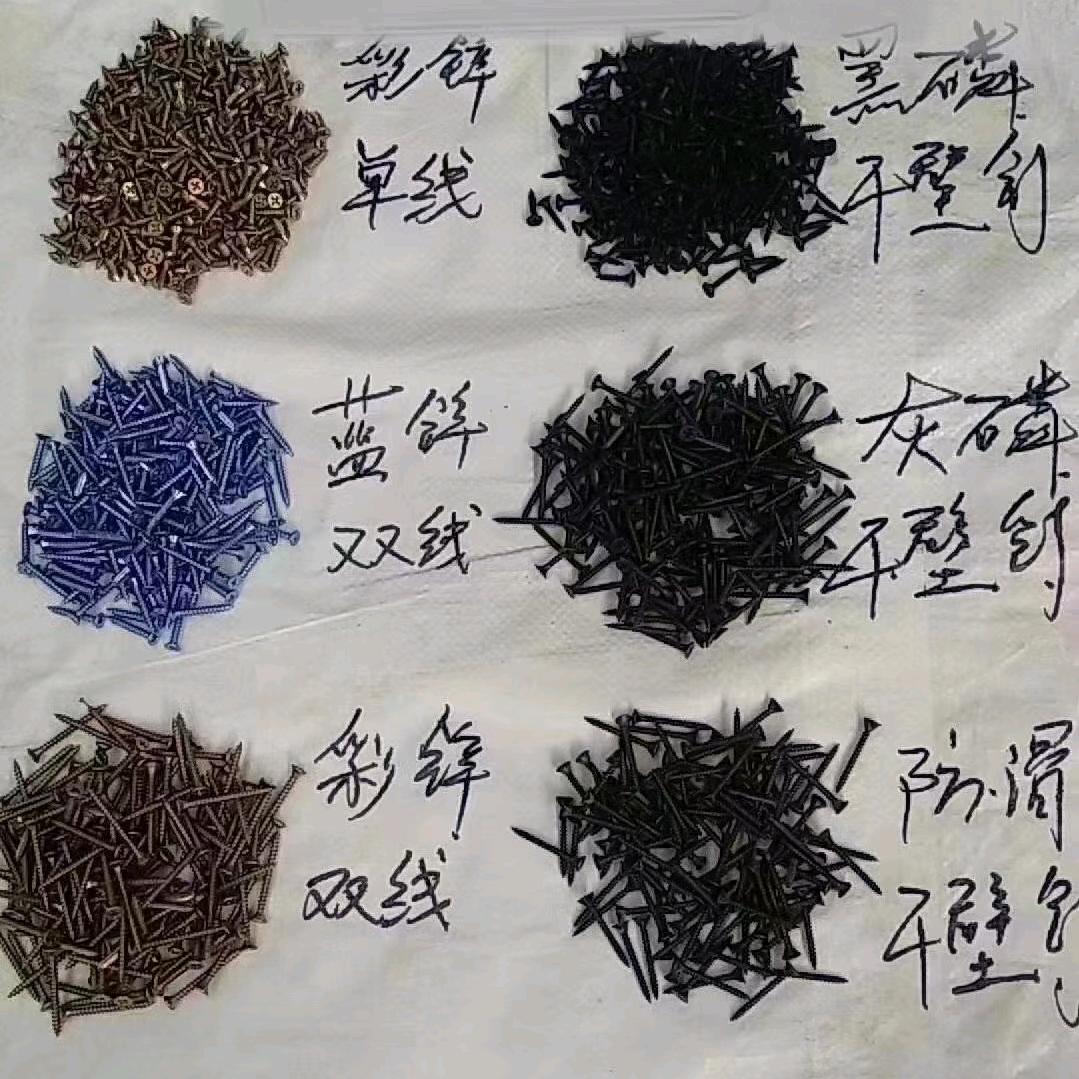 彩锌
单线
黑磷
干壁钉
蓝锌
双线
灰磷
干壁钉
彩锌
双线
防滑
干壁钉